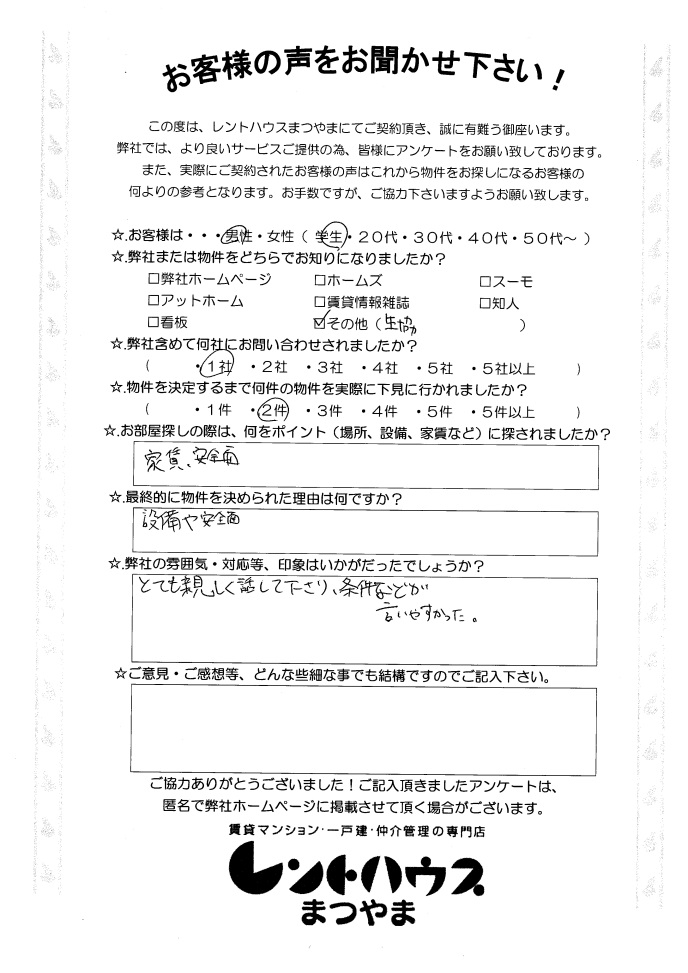 お客様の声をお聞かせ下さい！
この度は、レントハウスまつやまにてご契約頂き、誠に有難う御座います。
弊社では、より良いサービスご提供の為、皆様にアンケートをお願い致しております。
また、実際にご契約されたお客様の声はこれから物件をお探しになるお客様の
何よりの参考となります。お手数ですが、ご協力下さいますようお願い致します。
☆.お客様は・・・男性・女性（ 学生・２０代・３０代・４０代・５０代～ ）
☆.弊社または物件をどちらでお知りになりましたか？
□弊社ホームページ □ホームズ □スーモ
□アットホーム □賃貸情報雑誌 □知人
□看板 ☑その他（生協 ）
☆.弊社含めて何社にお問い合わせされましたか？
（ ・１社 ・２社 ・３社 ・４社 ・５社 ・５社以上 ）
☆.物件を決定するまで何件の物件を実際に下見に行かれましたか？
（ ・１件 ・２件 ・３件 ・４件 ・５件 ・５件以上 ）
☆.お部屋探しの際は、何をポイント（場所、設備、家賃など）に探されましたか？
家賃、安全面
☆.最終的に物件を決められた理由は何ですか？
設備や安全面
☆.弊社の雰囲気・対応等、印象はいかがだったでしょうか？
とても親しく話して下さり、条件などが
言いやすかった。
☆ご意見・ご感想等、どんな些細な事でも結構ですのでご記入下さい。
ご協力ありがとうございました！ご記入頂きましたアンケートは、
匿名で弊社ホームページに掲載させて頂く場合がございます。
賃貸マンション・一戸建・仲介管理の専門店
レントハウス
まつやま